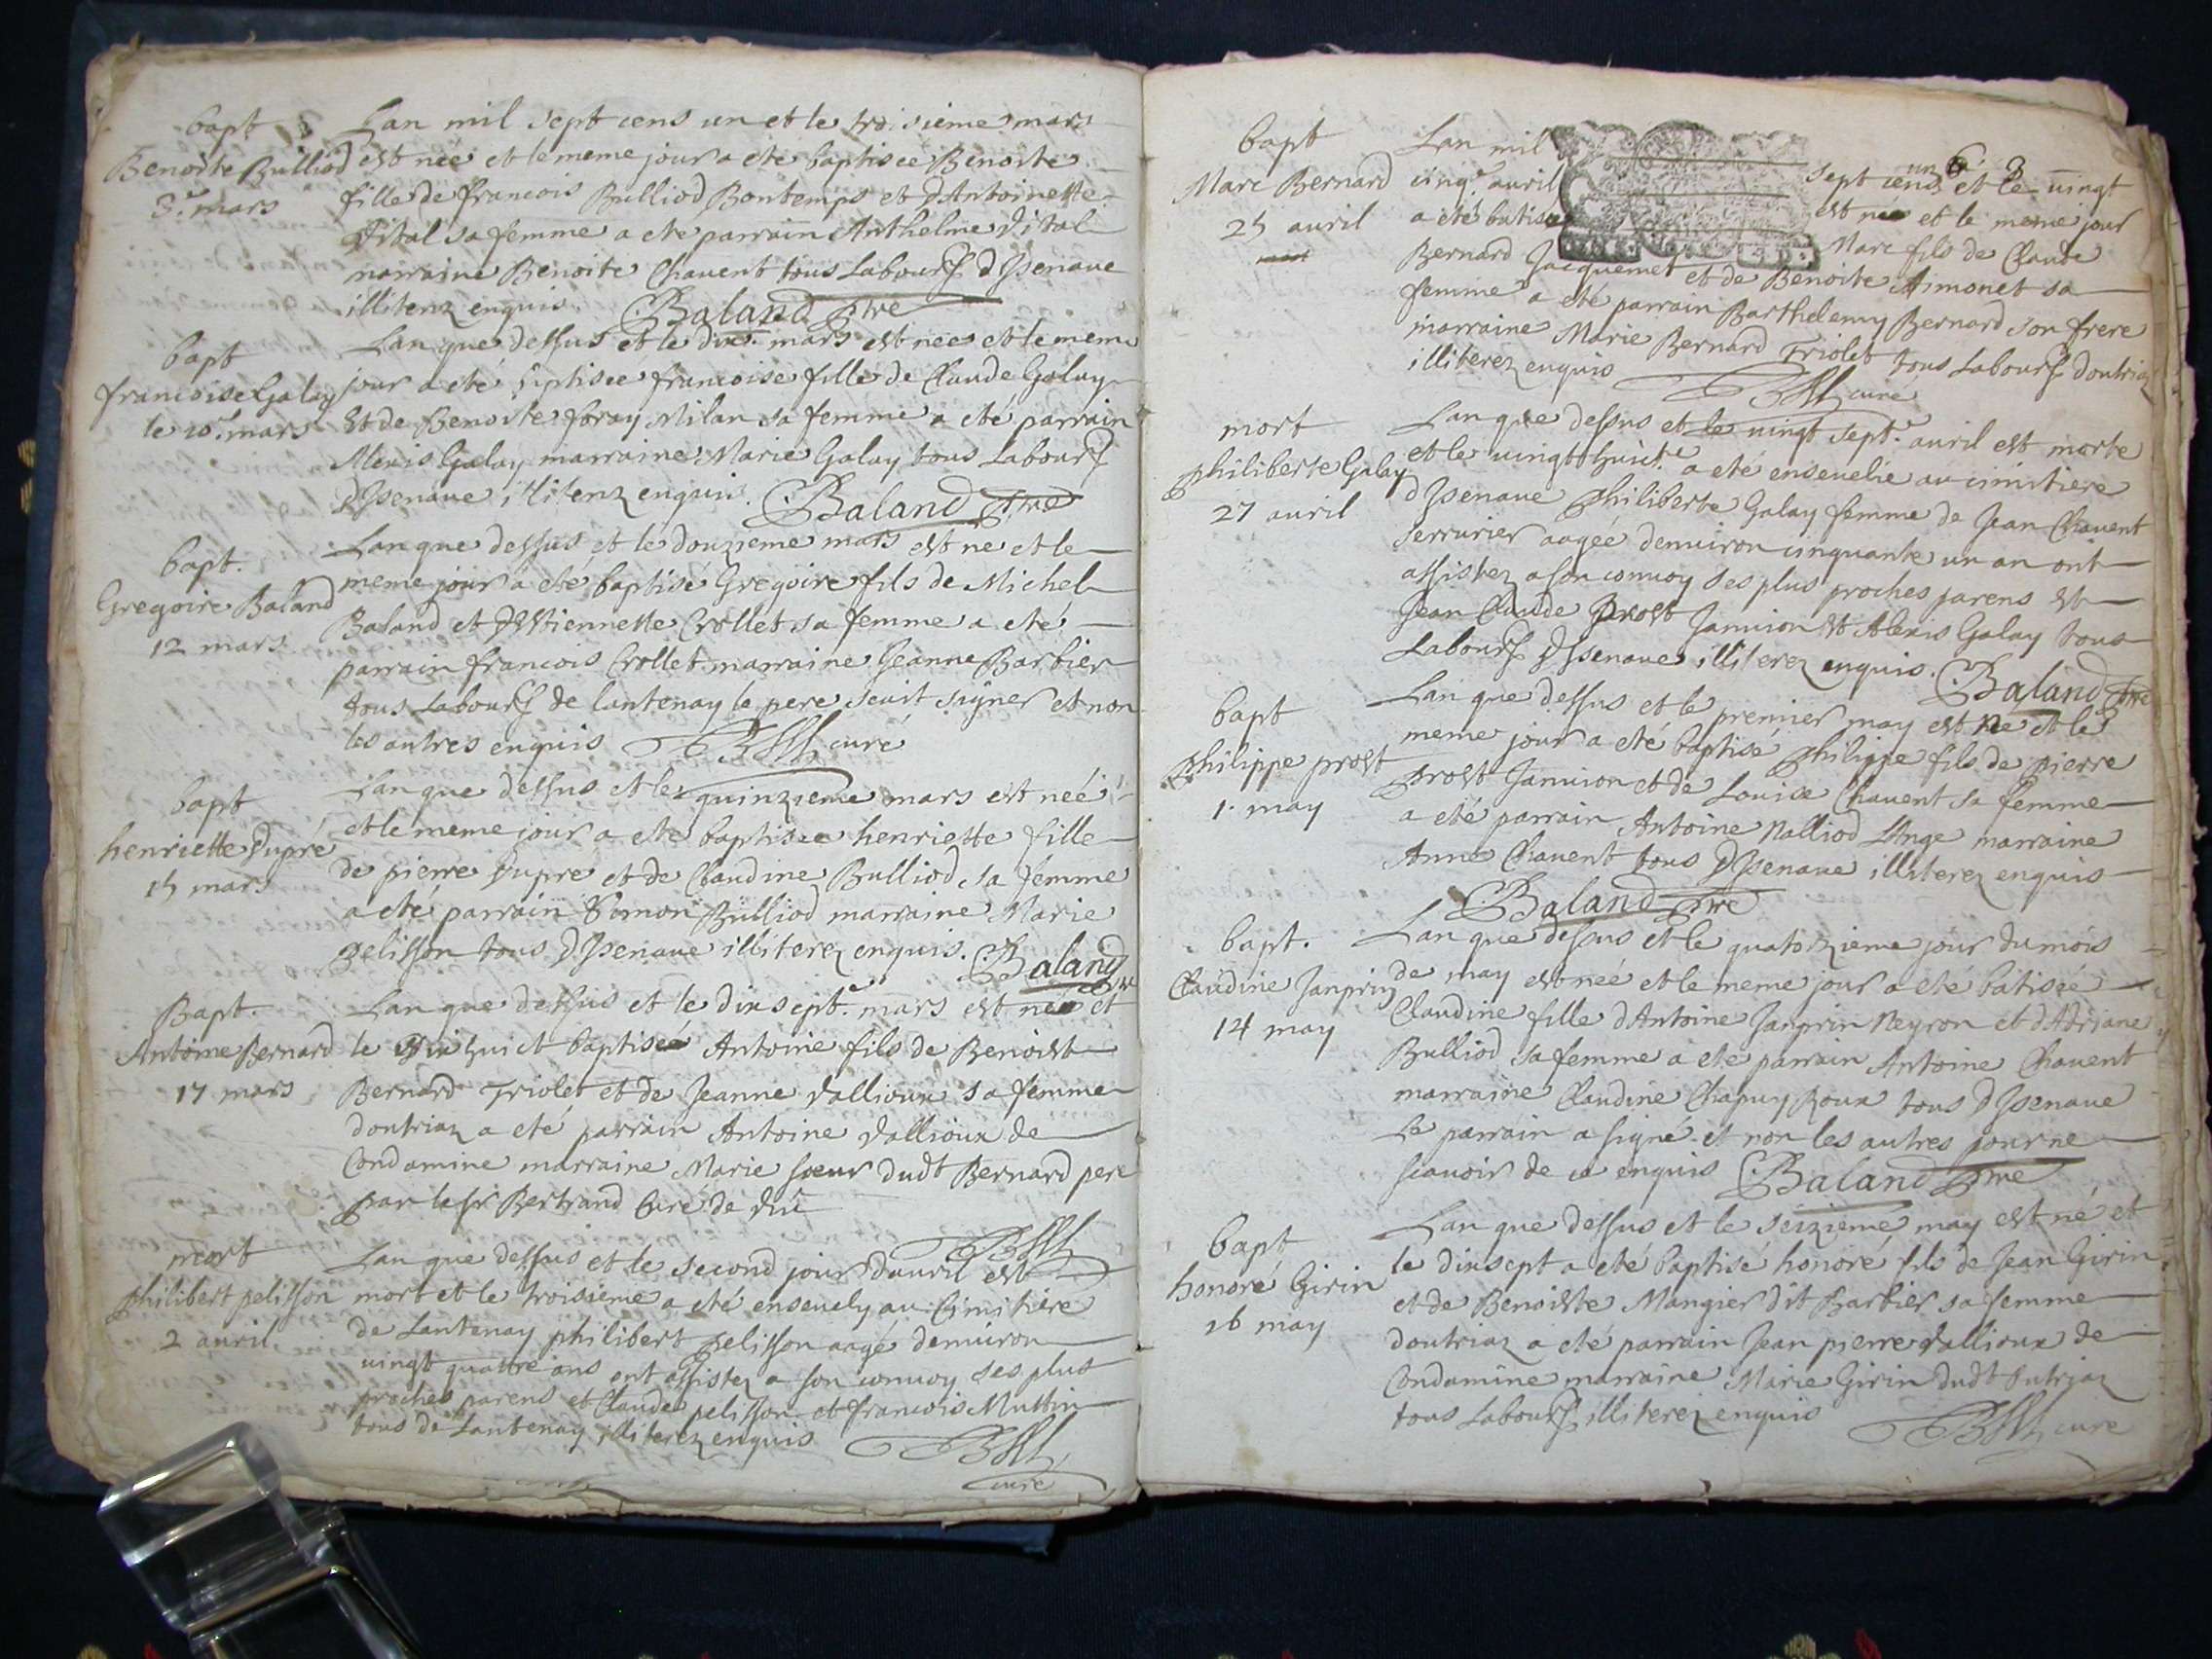 bapt
Benoite Bulliod
3.e mars
Lan mil sept cens un et le troisieme mars
est neé et le meme jour a eté baptiseé Benoite
fille de francois Bulliod Bontemps et d'Antoinette
Vital sa femme a eté parrain Anthelme Vital
marraine Benoite Chavent tous Labours d Jsenave
illiterz enquis. Baland ptre
bapt
francoise Galay
le 10.e mars
Lan que dessus et le dix.e mars est neé et le meme
jour a eté baptisee francoise fille de Claude Galay
Et de Benoite foray Milan sa femme a eté parrain
Alexis Galay marraine Marie Galay tous Labours
d Jsenave illiterz enquis. Baland ptre
bapt.
Gregoire Baland
12 mars
Lan que dessus et le douzieme mars est né et le
meme jour a eté baptisé Gregoire fils de Michel
Baland et d'Estiennette Crollet sa femme a eté
parrain francois Crollet marraine Jeanne Barbier
tous Labours de lantenay le pere scait signer et non
les autres enquis curé
bapt
henriette Dupré
15 mars
Lan que dessus et le quinzieme mars est neé
et le meme jour a eté baptiseé henriette fille
de pierre Dupre et de Claudine Bulliod sa femme
a eté parrain Simon Bulliod marraine Marie
pelisson tous d Jsenave illiterez enquis. Baland ptre
Bapt.
Antoine Bernard
17 mars
Lan que dessus et le dix sept.e mars est né et
le Dix huict baptisé Antoine fils de Benoist
Bernard Triolet et de Jeanne Vallioux sa femme
doutriaz a eté parrain Antoine Vallioux de
Condamine marraine Marie soeur dudt Bernard pere
par le sr Bertrand Curé de
mort
philibert pelisson
2 avril
Lan que dessus et le second jour d'avril est
mort et le troisieme a eté ensevely au Cimitiere
de Lantenay philibert pelisson aagé denviron
vingt quatre ans ont assistez a son convoy ses plus
proches parens et Claude pelisson et francois Muttin
tous de Lantenay illiterez enquis
curé
6 3
bapt
Marc Bernard
25 avril
Lan mil sept cens un et le vingt
cinq.e avril est né et le meme jour
a eté batisé Marc fils de Claude
Bernard Jacquemet et de Benoite Aimonet sa
femme a eté parrain Barthelemy Bernard son frere
marraine Marie Bernard Triolet tous Labours doutriaz
illiterez enquis curé
mort
philiberte Galay
27 avril
Lan que dessus et le vingt sept.e avril est morte
et le vingt huict.e a eté ensevelie au cimitiere
d Jsenave Philiberte Galay femme de Jean Chavent
serrurier aageé denviron cinquante un an ont
assistez a son convoy ses plus proches parens Et
Jean Claude Prost Janvion Et Alexis Galay tous
Labours d Jsenave illiterez enquis. Baland ptre
bapt
philippe prost
1. may
Lan que dessus et le premier may est né et le
meme jour a eté baptisé philippe fils de pierre
prost Janvion et de Louise Chavent sa femme
a eté parrain Antoine Nalliod L'Ange marraine
Anne Chavent tous d Jsenave illiterez enquis
Baland ptre
bapt.
Claudine Janprin
14 may
Lan que dessus et le quatorzieme jour du mois
de may est neé et le meme jour a eté batiseé
Claudine fille d'Antoine Janprin Neyron et d'Adriane
Bulliod sa femme a eté parrain Antoine Chavent
marraine Claudine Chapuy Roux tous d Jsenave
Le parrain a signé et non les autres pour ne
scavoir de ce enquis Baland ptre
bapt
honoré Girin
16 may
Lan que dessus et le seizieme may est né et
le dix sept a eté baptisé honoré fils de Jean Girin
et de Benoiste Mangier dit Barbier sa femme
doutriaz a eté parrain Jean pierre Vallioux de
Condamine marraine Marie Girin dudt outriaz
tous Labours illiterez enquis curé